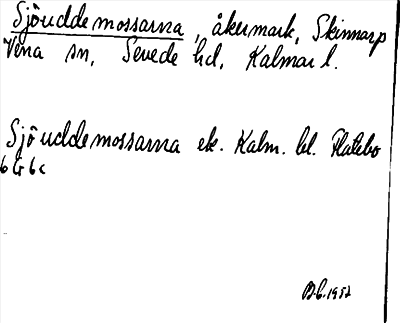 Sjöuddemossarna, åkermark, Skinnarp
Vena sn, Sevede hd, Kalmar l.
Sjöuddemossarna ek. Kalm. bl. Flatebo
6 G 6 c
1952